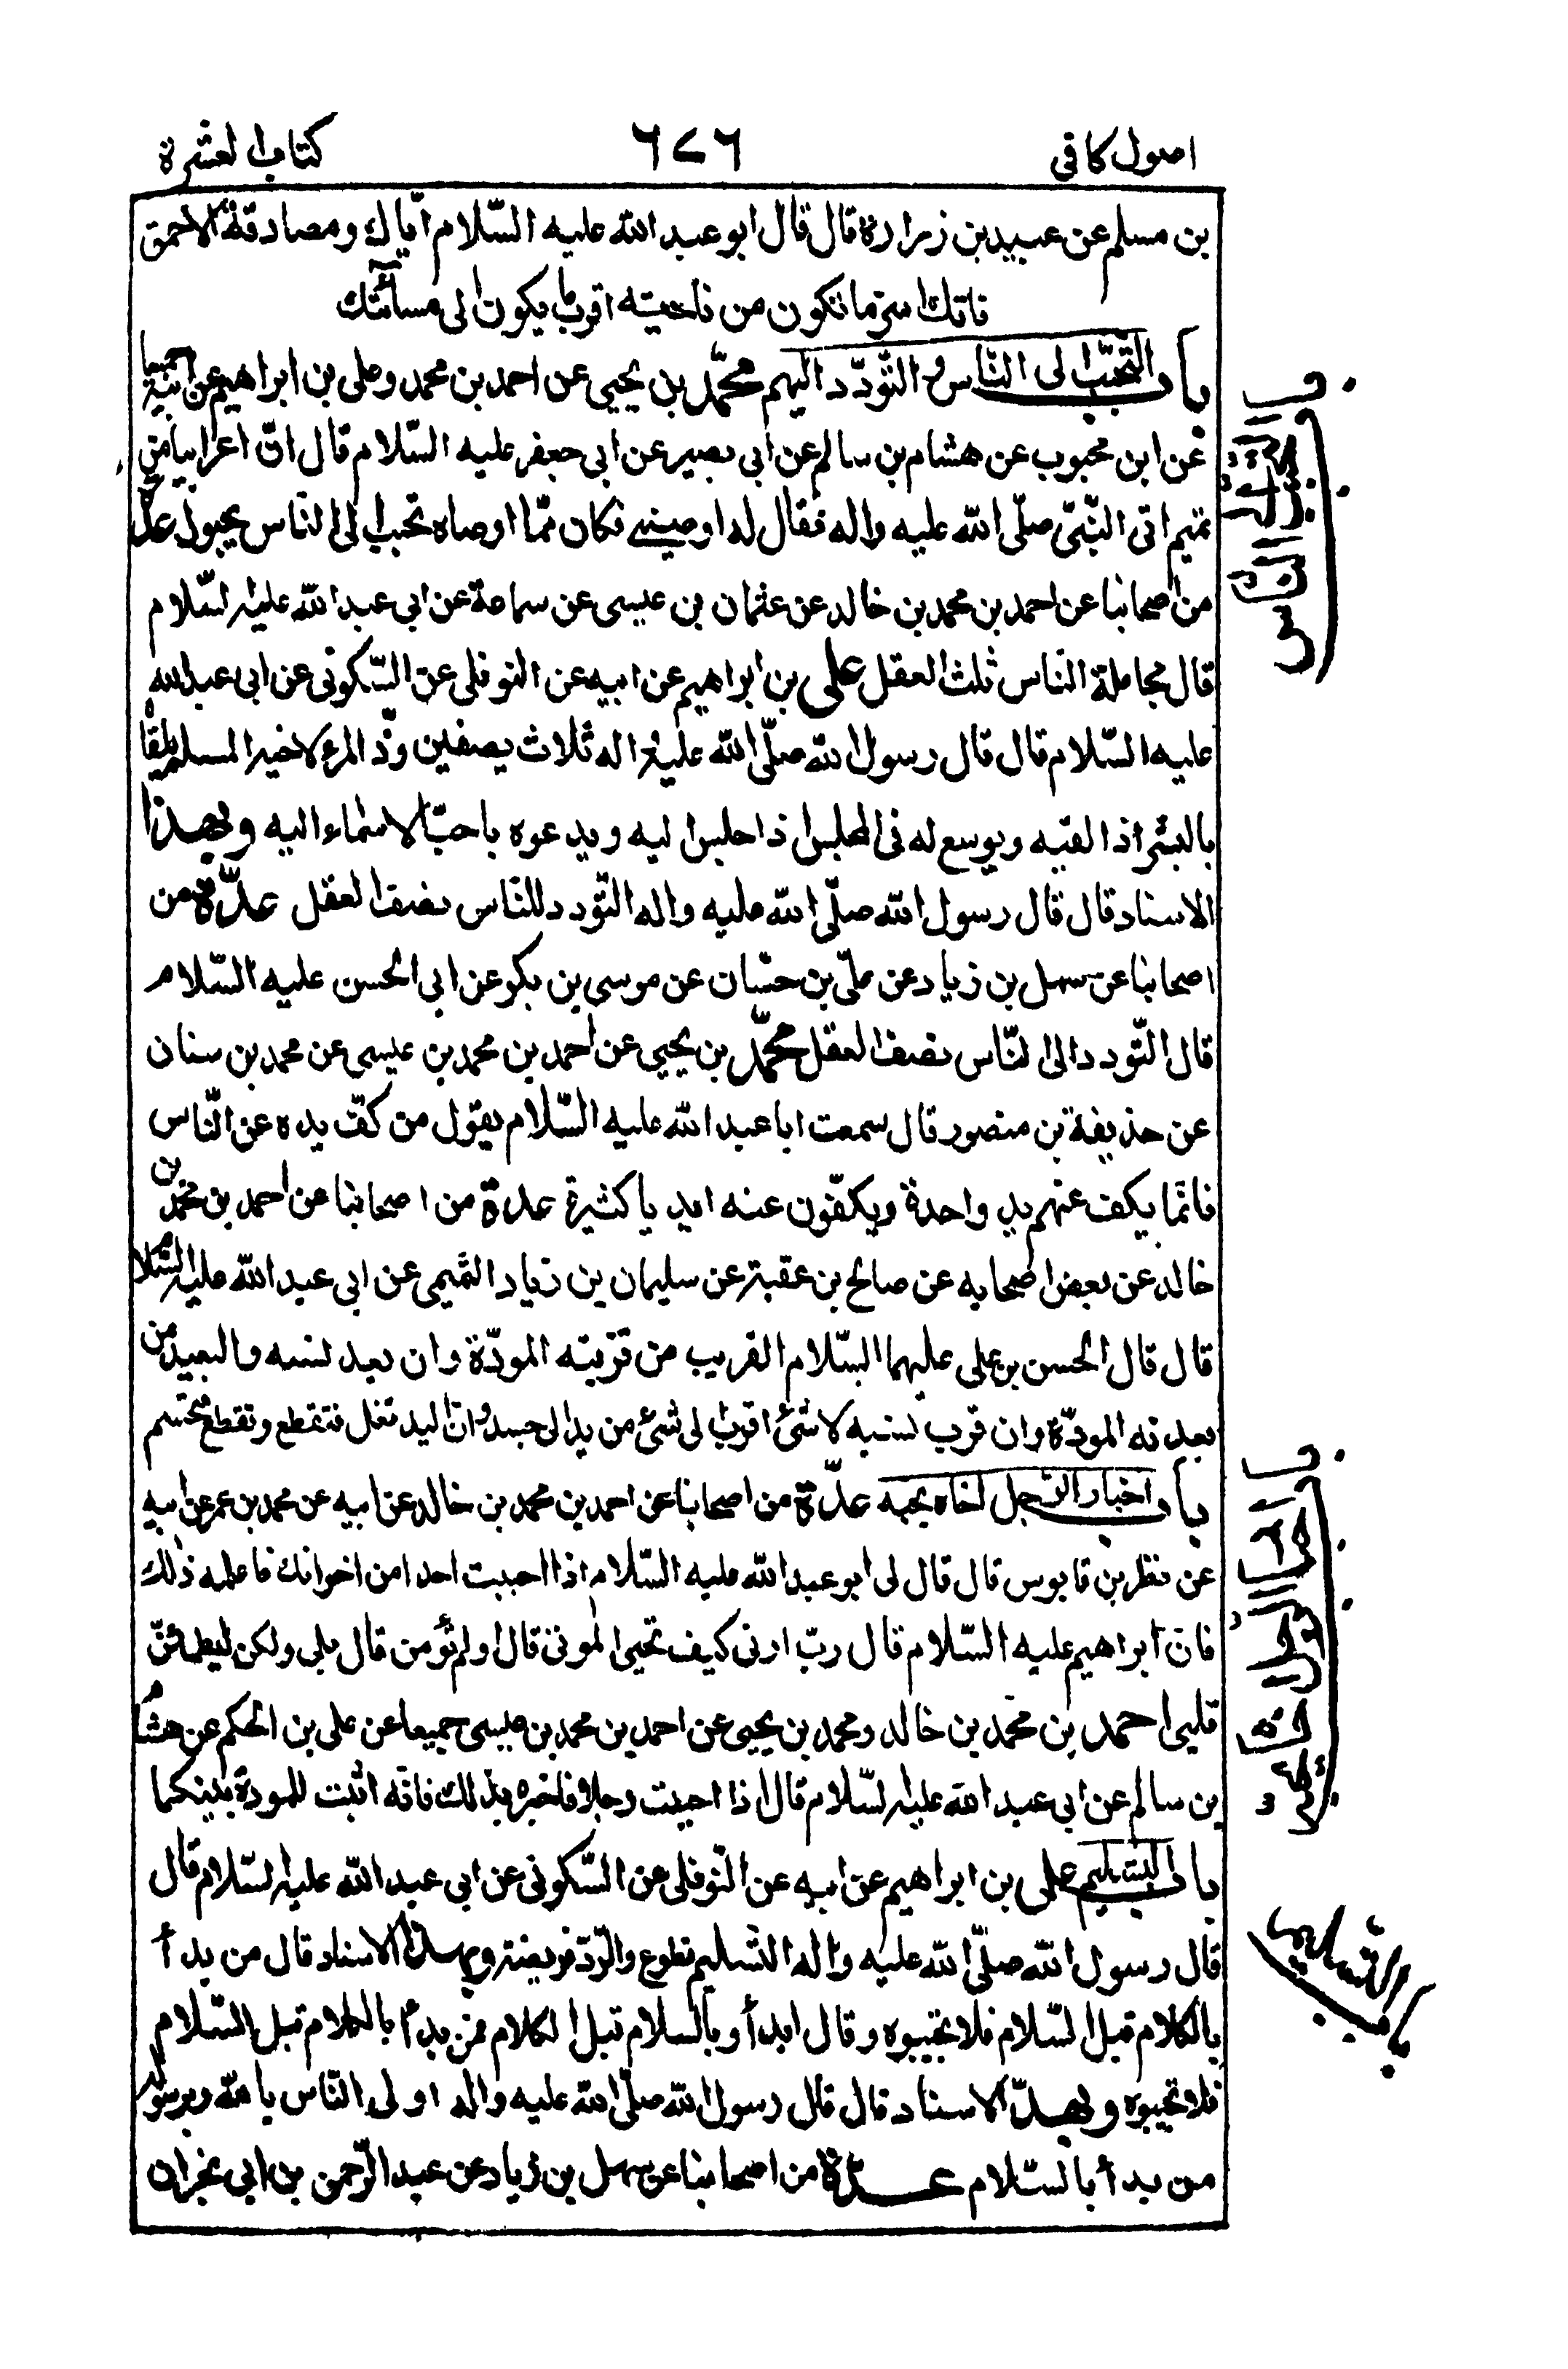 اصول كافى ٦٧٦ كتاب العشرة
بن مسلم عن عبيد بن زرارة قال قال ابو عبد الله عليه السّلام ايّاك ومصادقة الاحمق
فانّك اسرّ ما تكون من ناحيته اقرب ما يكون الى مسائتك
باب التحبّب الى النّاس و التّودّد اليهم محمّد بن يحيى عن احمد بن محمد وعلى بن ابراهيم عن ابيه جميعا
عن ابن محبوب عن هشام بن سالم عن ابى بصير عن ابى جعفر عليه السّلام قال انّ اعرابيا من بنى
تميم اتى النّبىّ صلّى الله عليه واله فقال له اوصنى فكان ممّا اوصاه تحبب الى النّاس يحبوك عدّة
من اصحابنا عن احمد بن محمد بن خالد عن عثمان بن عيسى عن سماعة عن ابى عبد الله عليه السّلام
قال مجاملة الناس ثلث العقل على بن ابراهيم عن ابيه عن النوفلى عن السّكونى عن ابى عبد الله
عليه السّلام قال قال رسول الله صلّى الله عليه واله ثلاث يصفين ودّ المرء لاخيه المسلم يلقاه
بالبشر اذا لقيه ويوسع له فى المجلس اذا جلس اليه ويدعوه باحبّ الاسماء اليه وبهذا
الاسناد قال قال رسول الله صلّى الله عليه واله التّودد للنّاس نصف العقل عدّة من
اصحابنا عن سهل بن زياد عن علىّ بن حسّان عن موسى بن بكر عن ابى الحسن عليه السّلام
قال التّودد الى النّاس نصف العقل محمّد بن يحيى عن احمد بن محمد بن عيسى عن محمد بن سنان
عن حذيفة بن منصور قال سمعت ابا عبد الله عليه السّلام يقول من كفّ يده عن النّاس
فانّما يكف عنهم يد واحدة ويكفّون عنه ايد يا كثيرة عدة من اصحابنا عن احمد بن محمد بن
خالد عن بعض اصحابه عن صالح بن عقبة عن سليمان بن زياد التّميمى عن ابى عبد الله عليه السّلام
قال قال الحسن بن على عليهما السّلام القريب من قرّبته المودّة وان بعد نسبه والبعيد من
بعدته المودّة وان قرب نسبه لا شئ اقرب الى شئ من يد الى جسد وانّ اليد تغل فتقطع وتقطع فتحسم
باب اخبار الرّجل اخاه بحبه عدّة من اصحابنا عن احمد بن محمد بن خالد عن ابيه عن محمد بن عمر عن ابيه
عن نظر بن قابوس قال قال لى ابو عبد الله عليه السّلام اذا احببت احدا من اخوانك فاعلمه ذلك
فان ابراهيم عليه السّلام قال ربّ ارنى كيف تحيى الموتى قال اولم تؤمن قال بلى ولكن ليطمئنّ
قلبى احمد بن محمّد بن خالد ومحمد بن يحيى عن احمد بن محمد بن عيسى جميعا عن على بن الحكم عن هشام
بن سالم عن ابى عبد الله عليه السّلام قال اذا احببت رجلا فاخبره بذلك فانّه اثبت للمودة بينكما
باب التسليم على بن ابراهيم عن ابيه عن النّوفلى عن السّكونى عن ابى عبد الله عليه السّلام قال
قال رسول الله صلّى الله عليه واله التّسليم تطوع والرّدّ فريضة وبهذا الاسناد قال من بدأ
بالكلام قبل السّلام فلا تجيبوه وقال ابدأوا بالسّلام قبل الكلام فمن بدأ بالكلام قبل السّلام
فلا تجيبوه وبهذا الاسناد قال قال رسول الله صلّى الله عليه واله اولى النّاس بالله وبرسوله
من بدأ بالسّلام عدّة من اصحابنا عن سهل بن زياد عن عبد الرّحمن بن ابى نجران
باب التسليم